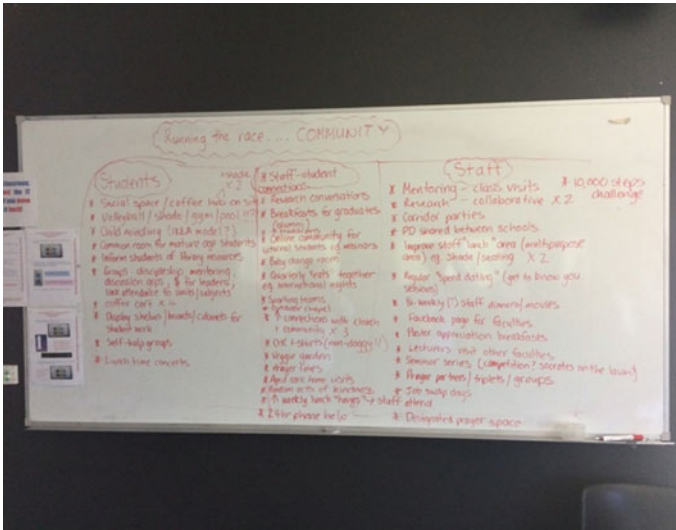 Running the race.... COMMUNITY
Students
+shade
x 2
* Social space / coffee hub on
* Volleyball / shade / gym / pool !!?
* Child minding (IKEA model?)
* Common room for mature age students
* Inform students of library resources
* Groups - discipleship, mentoring,
discussion grps, $ for leaders,
link attendance to units/subjects
* coffee cart x
* Display shelves / boards / cabinets for
student work
* Self-help groups
* Lunch time concerts
* Staff-student
connections-
* Research conversations
* Breakfasts for graduates
* Online community for
external students eg webinars
* Baby change room
* Quarterly "feasts" together
eg. international nights
* Sporting teams
* connections with church
+ community x 3
* OK t-shirts (non-daggy!!)
* Veggie garden
* Prayer times
* Aged care home visits
* Random acts of kindness
* weekly lunch → staff
attend
* 24hr phone
Staff
* Mentoring - class visits
* Research - collaborative x 2
* Corridor parties
* PD shared between schools
* Improve staff "lunch" area (multipurpose
area) eg. shade / seating x 2
* Regular "speed dating" (get to know you
sessions)
* Bi-weekly (?) staff dinners/movies
* Facebook page for faculties
* Pastor appreciation breakfasts
* Lecturers visit other faculties
* Seminar series (competition? socrates on the lawn)
* Prayer partners / triplets / groups
* Job swap days
* Designated prayer space
* 10,000 steps
challenge